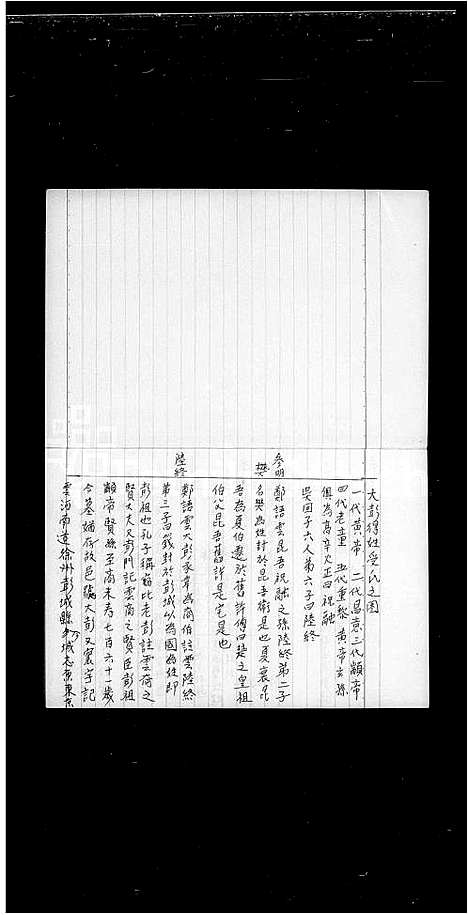 大彭得姓受氏之圖
一代黄帝 二代昌意 三代顓帝
四代老童 五代重黎 黄帝玄孫
俱為高辛火正曰祝融
吳回子六人第六子曰陸終
參明 鄭語雲昆吾祝融之孫陸終第二子
樊 名樊為姓封於昆吾衛是也夏衰昆
吾為夏伯遷於舊許傳曰楚之皇祖
伯父昆吾舊許是宅是也
陸終 鄭語雲大彭豕韋為商伯註雲陸終
第三子曰籛封於彭城以為國為姓即
彭祖也孔子稱竊比老彭註雲商之
賢大夫又彭門記雲商之賢臣彭祖
顓帝賢孫至商末考七百六十一歲
今墓猶存故邑號大彭又寰宇記
雲河南道徐州彭城縣